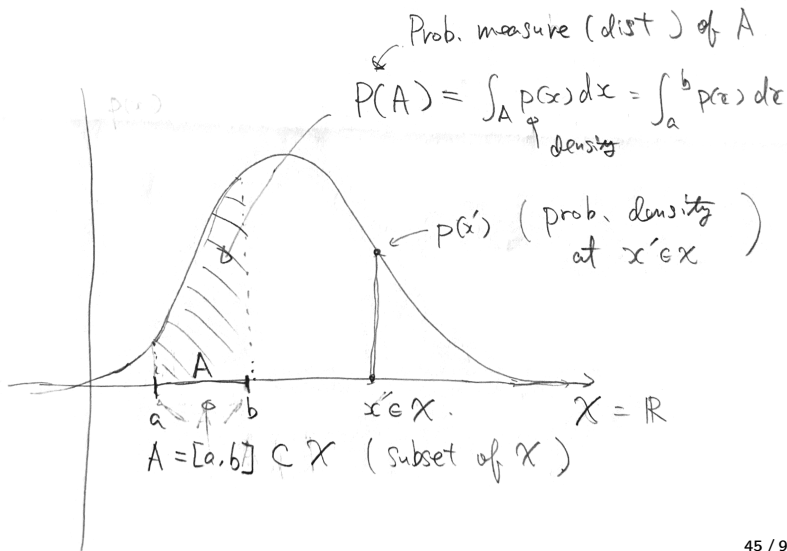 Prob. measure (dist) of A
P(A) = ∫_A p(x) dx = ∫_a^b p(x) dx
density
p(x)
p(x′) (prob. density
at x′ ∈ X)
A
a b x′ ∈ X. X = ℝ
A = [a, b] ⊂ X (subset of X)
45 / 9